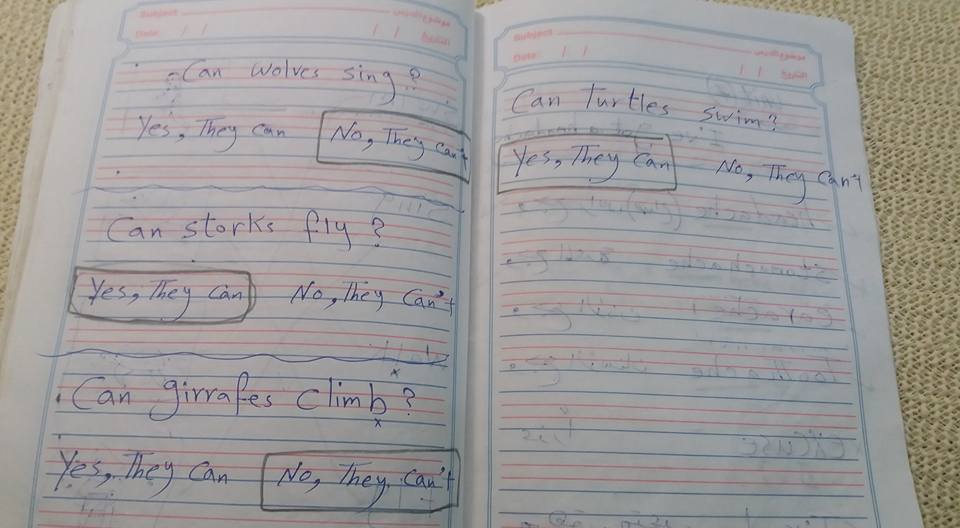 Subject
Date: / /
/ / التاريخ
Can wolves sing?
Yes, They can No, They can't
Can storks fly?
Yes, They can No, They can't
Can girrafes climb?
Yes, They can No, They can't
Subject
Date: / /
/ / التاريخ
Can Turtles swim?
Yes, They can No, They can't